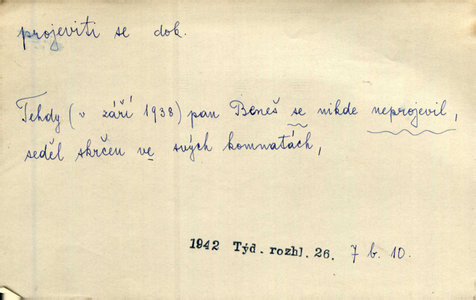 projeviti se dok.
Tehdy (v září 1938) pan Beneš se nikde neprojevil,
seděl skrčen ve svých komnatách,
1942 Týd. rozhl. 26. 7 b. 10.